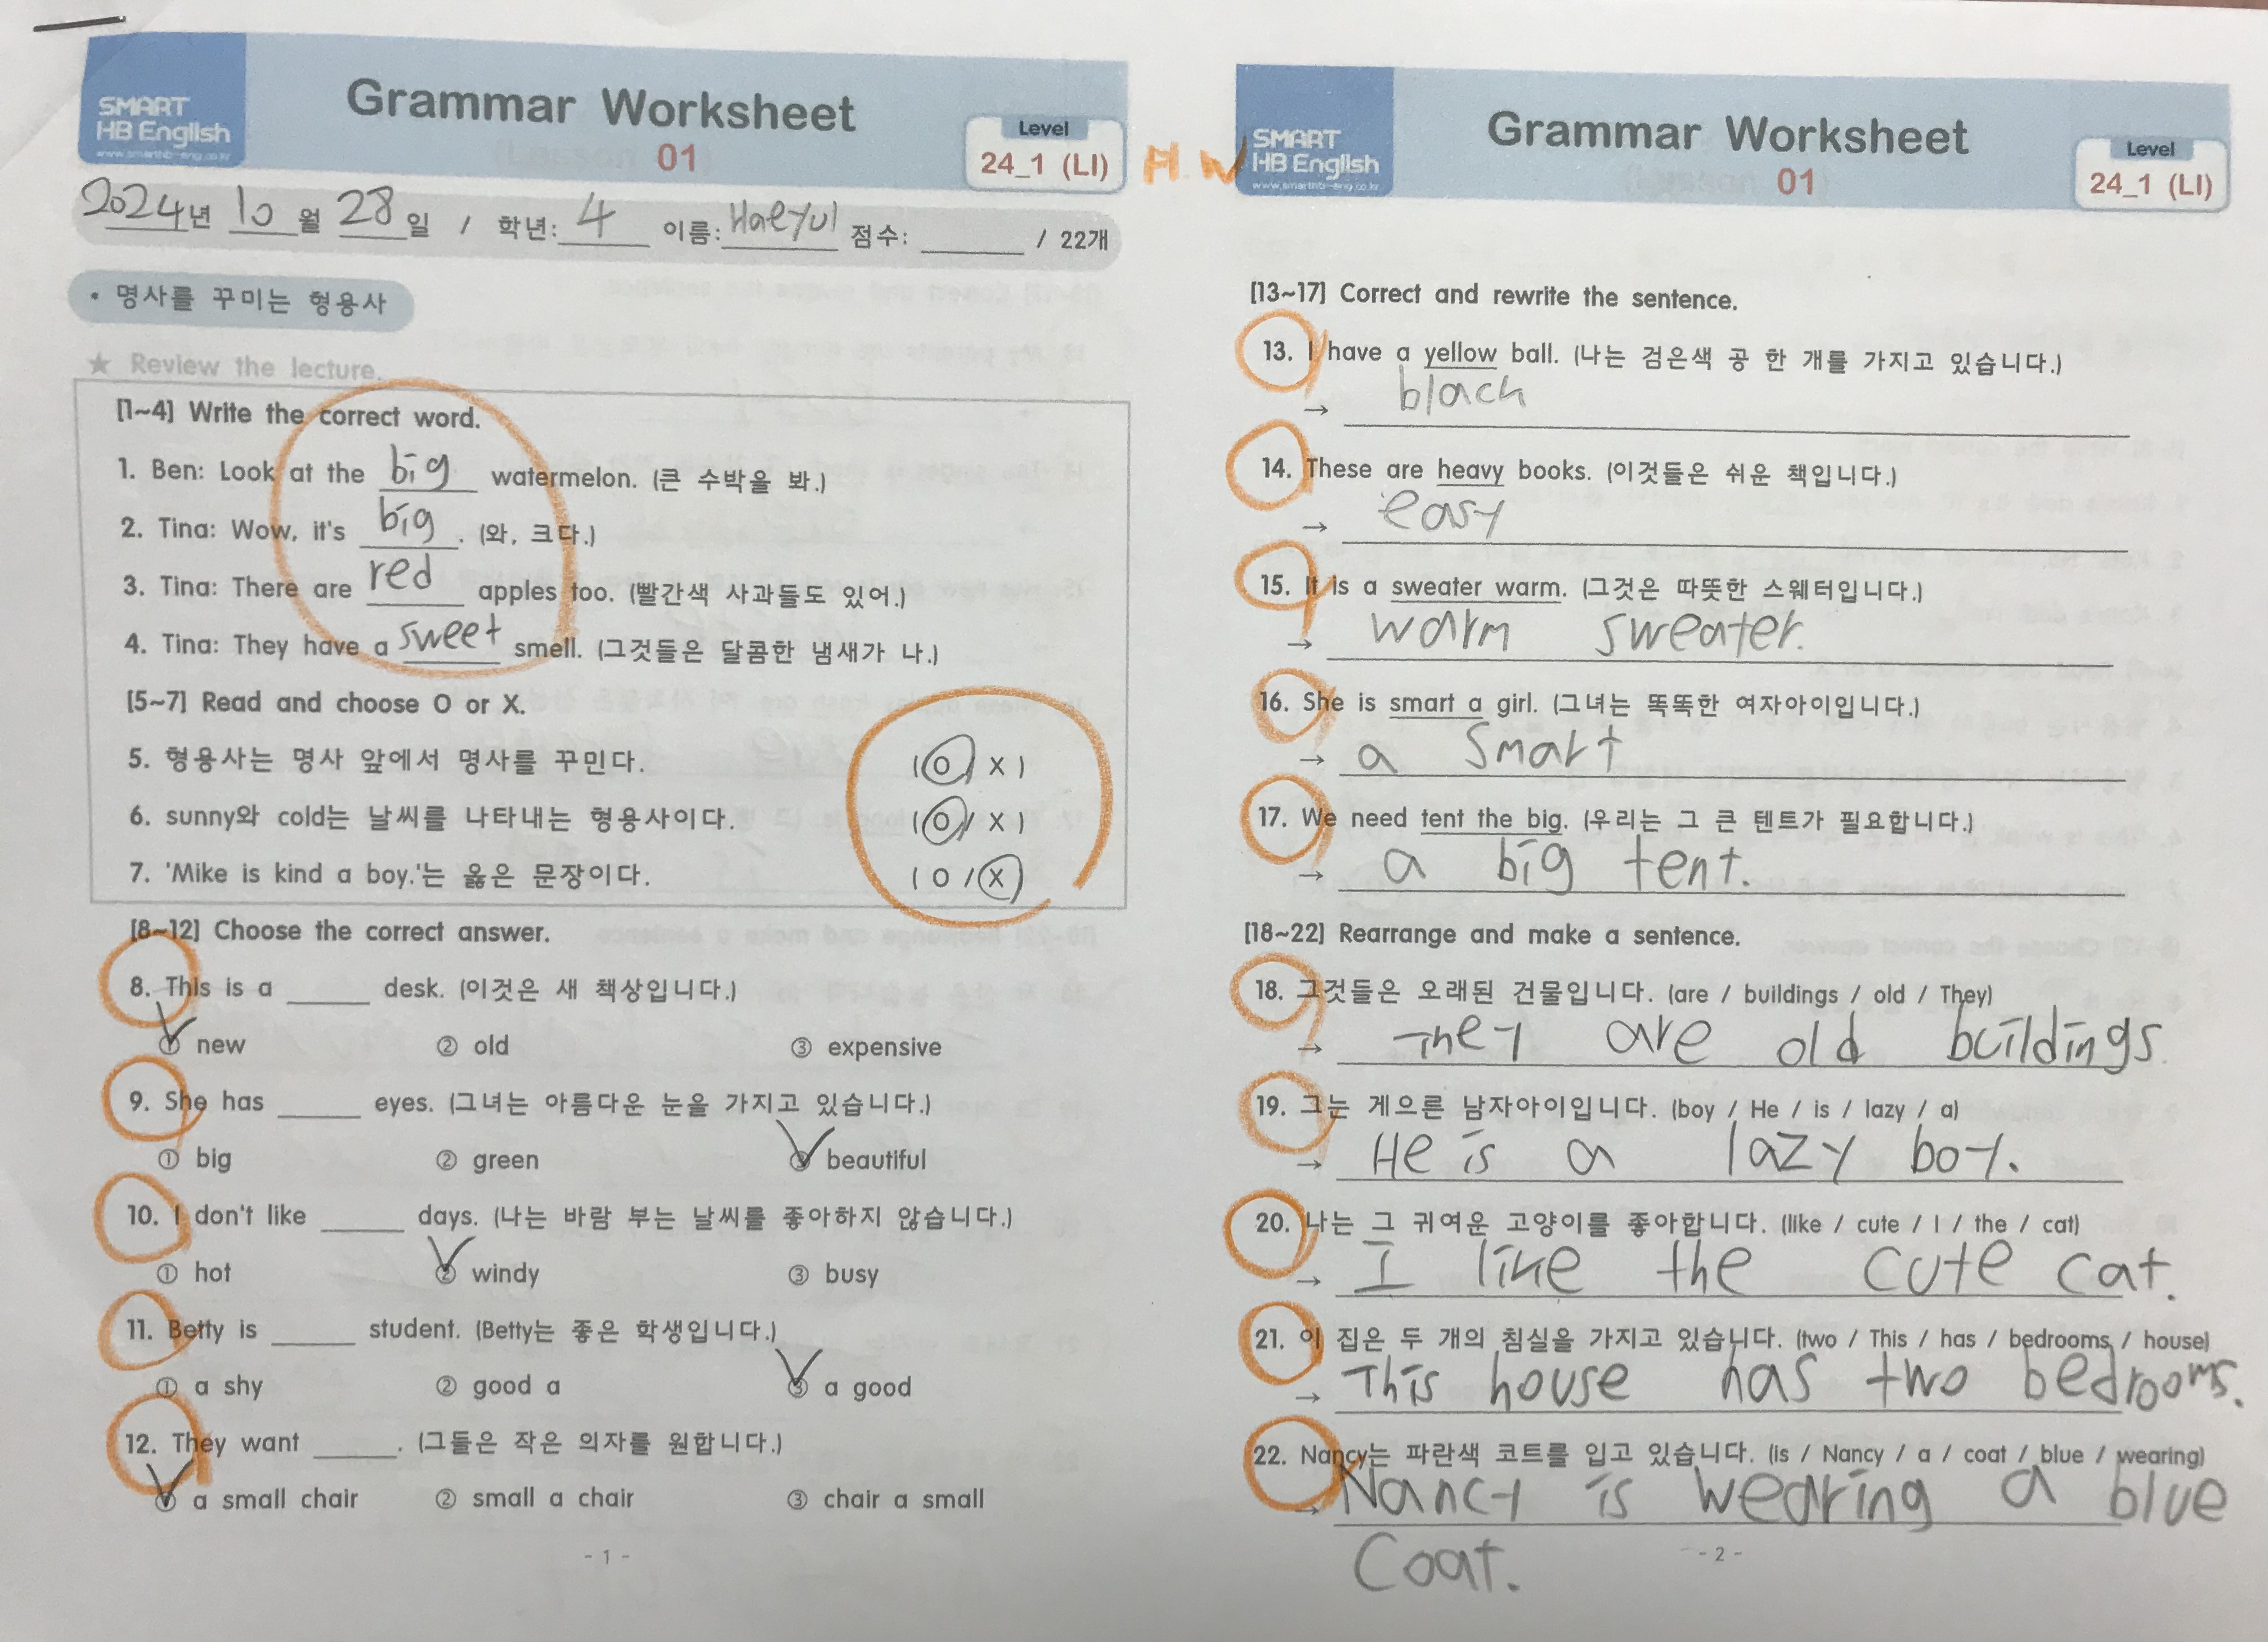 SMART
HB English
www.smarthb-eng.co.kr
Grammar Worksheet
01
Level
24_1 (LI)
2024년 10월 28일 / 학년: 4 이름: Haeyul 점수: / 22개
• 명사를 꾸미는 형용사
★ Review the lecture.
[1~4] Write the correct word.
1. Ben: Look at the big watermelon. (큰 수박을 봐.)
2. Tina: Wow, it's big. (와, 크다.)
3. Tina: There are red apples too. (빨간색 사과들도 있어.)
4. Tina: They have a sweet smell. (그것들은 달콤한 냄새가 나.)
[5~7] Read and choose O or X.
5. 형용사는 명사 앞에서 명사를 꾸민다. ( O / X )
6. sunny와 cold는 날씨를 나타내는 형용사이다. ( O / X )
7. 'Mike is kind a boy.'는 옳은 문장이다. ( O / X )
[8~12] Choose the correct answer.
8. This is a ____ desk. (이것은 새 책상입니다.)
① new ② old ③ expensive
9. She has ____ eyes. (그녀는 아름다운 눈을 가지고 있습니다.)
① big ② green ③ beautiful
10. I don't like ____ days. (나는 바람 부는 날씨를 좋아하지 않습니다.)
① hot ② windy ③ busy
11. Betty is ____ student. (Betty는 좋은 학생입니다.)
① a shy ② good a ③ a good
12. They want ____. (그들은 작은 의자를 원합니다.)
① a small chair ② small a chair ③ chair a small
- 1 -
H.W
SMART
HB English
www.smarthb-eng.co.kr
Grammar Worksheet
01
Level
24_1 (LI)
[13~17] Correct and rewrite the sentence.
13. I have a yellow ball. (나는 검은색 공 한 개를 가지고 있습니다.)
→ black
14. These are heavy books. (이것들은 쉬운 책입니다.)
→ easy
15. It is a sweater warm. (그것은 따뜻한 스웨터입니다.)
→ warm sweater.
16. She is smart a girl. (그녀는 똑똑한 여자아이입니다.)
→ a smart
17. We need tent the big. (우리는 그 큰 텐트가 필요합니다.)
→ a big tent.
[18~22] Rearrange and make a sentence.
18. 그것들은 오래된 건물입니다. (are / buildings / old / They)
→ They are old buildings.
19. 그는 게으른 남자아이입니다. (boy / He / is / lazy / a)
→ He is a lazy boy.
20. 나는 그 귀여운 고양이를 좋아합니다. (like / cute / I / the / cat)
→ I like the cute cat.
21. 이 집은 두 개의 침실을 가지고 있습니다. (two / This / has / bedrooms / house)
→ This house has two bedrooms.
22. Nancy는 파란색 코트를 입고 있습니다. (is / Nancy / a / coat / blue / wearing)
→ Nancy is wearing a blue
coat.
- 2 -